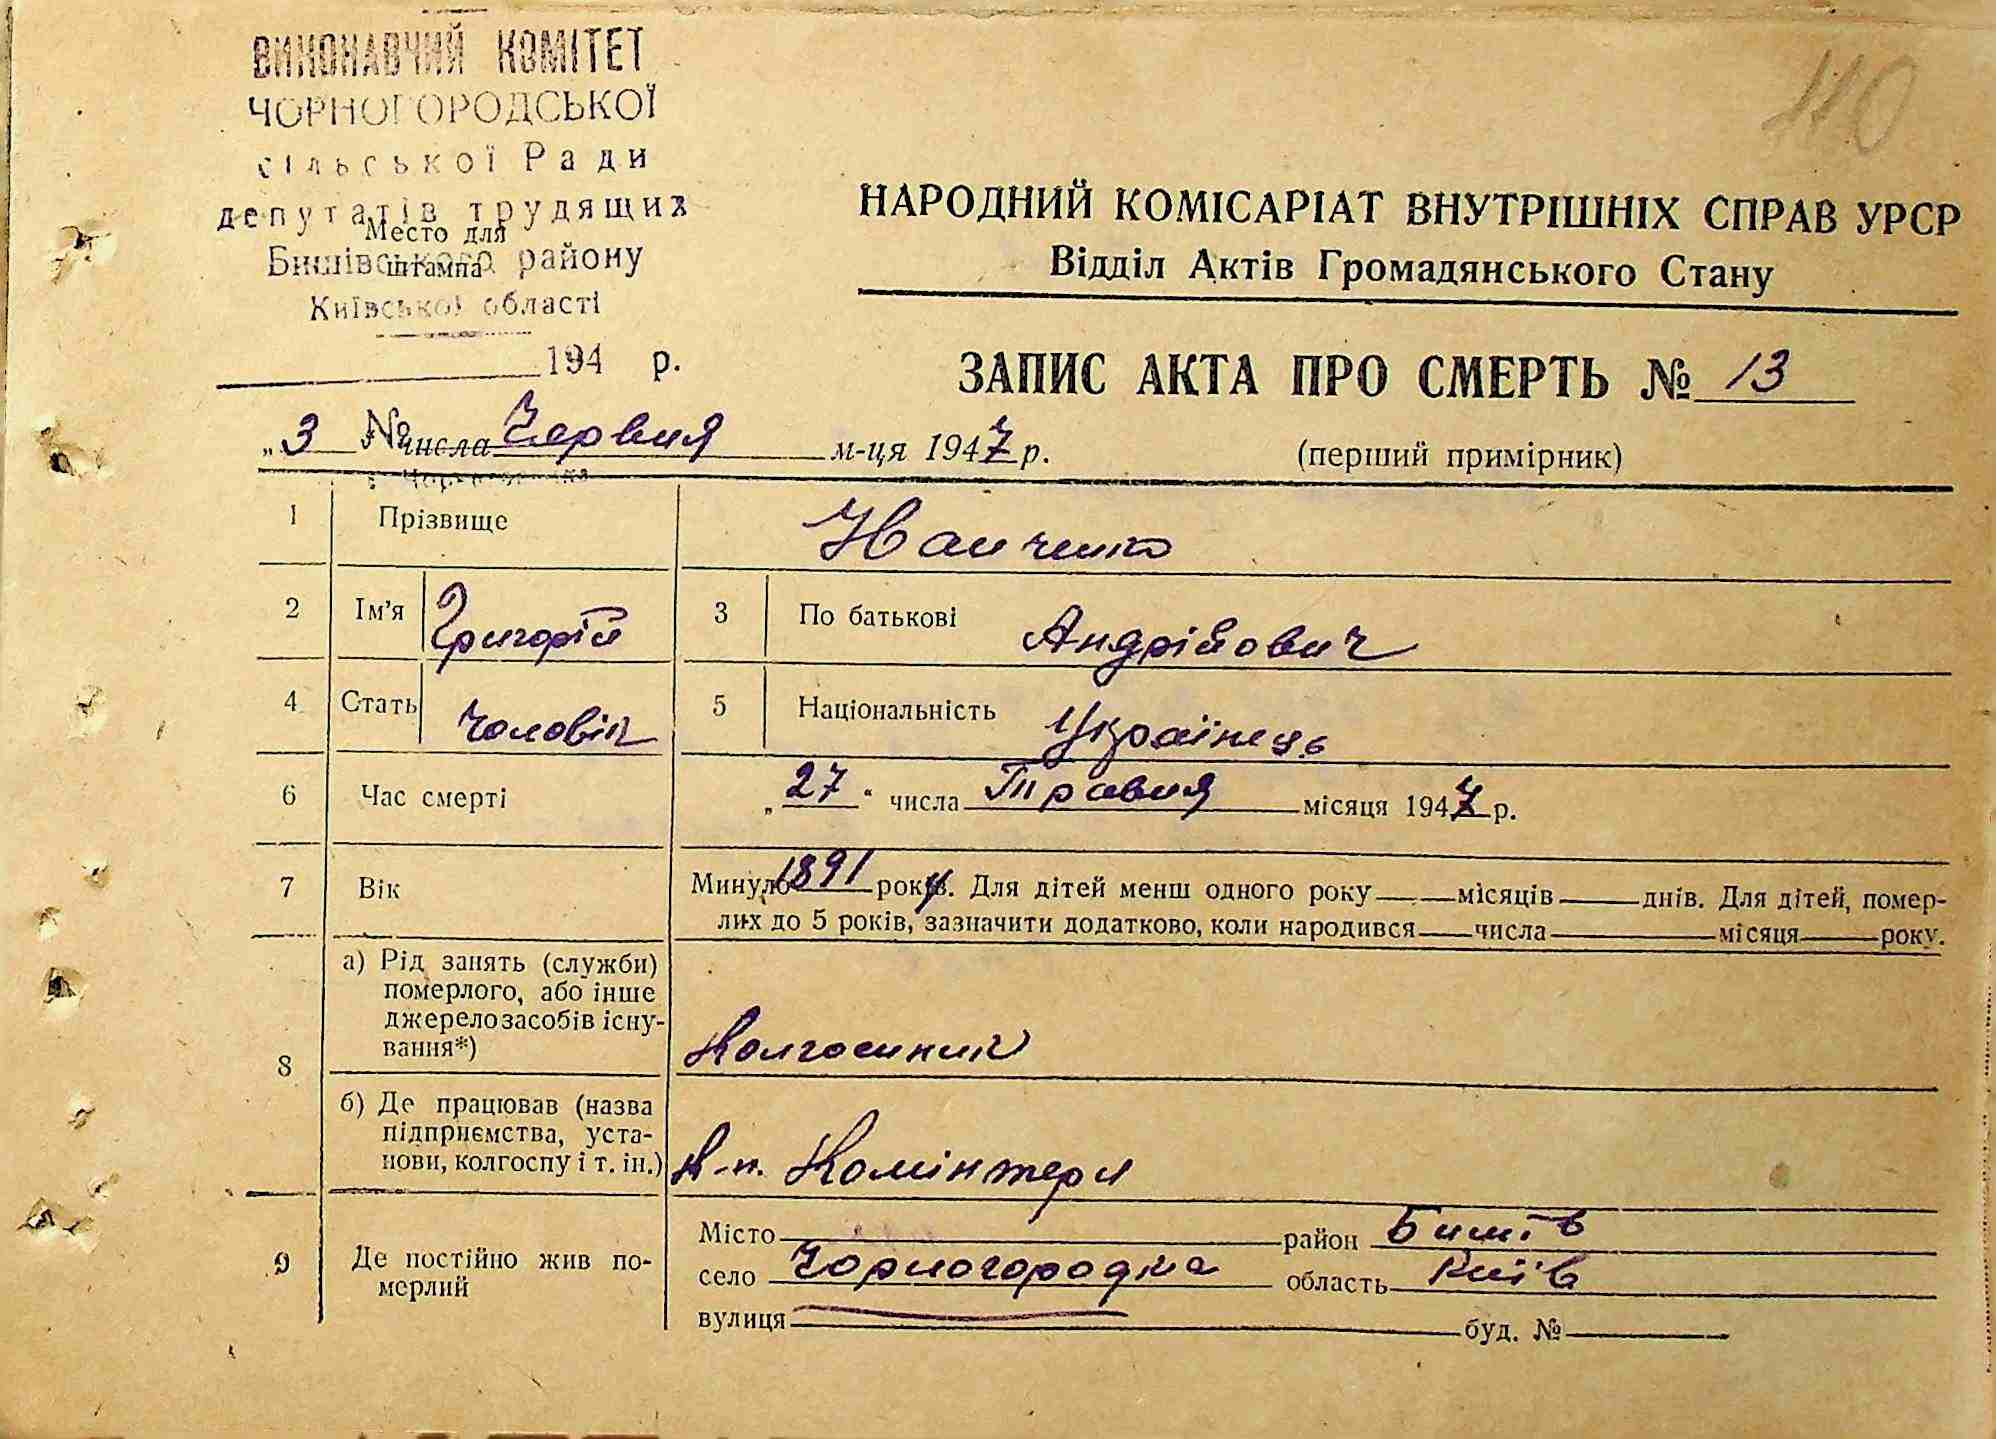 110
ВИКОНАВЧИЙ КОМІТЕТ
ЧОРНОГОРОДСЬКОЇ
сільської Ради
депутатів трудящих
Место для
Бишівського району
штампа
Київської області
194 р.
№
НАРОДНИЙ КОМІСАРІАТ ВНУТРІШНІХ СПРАВ УРСР
Відділ Актів Громадянського Стану
ЗАПИС АКТА ПРО СМЕРТЬ № 13
„3 числа Червня м-ця 1947 р. (перший примірник)
1 Прізвище Іванченко
2 Ім’я Григорій 3 По батькові Андрійович
4 Стать Чоловік 5 Національність Українець
6 Час смерті „27“ числа Травня місяця 1947 р.
7 Вік Минуло 1891 років. Для дітей менш одного року місяців днів. Для дітей, помер-
лих до 5 років, зазначити додатково, коли народився числа місяця року.
8 а) Рід занять (служби)
померлого, або інше
джерело засобів існу-
вання*) Колгоспник
б) Де працював (назва
підприємства, уста-
нови, колгоспу і т. ін.) К-п. Комінтерн
9 Де постійно жив по-
мерлий
Місто район Бишів
село Чорногородка область Київ
вулиця буд. №